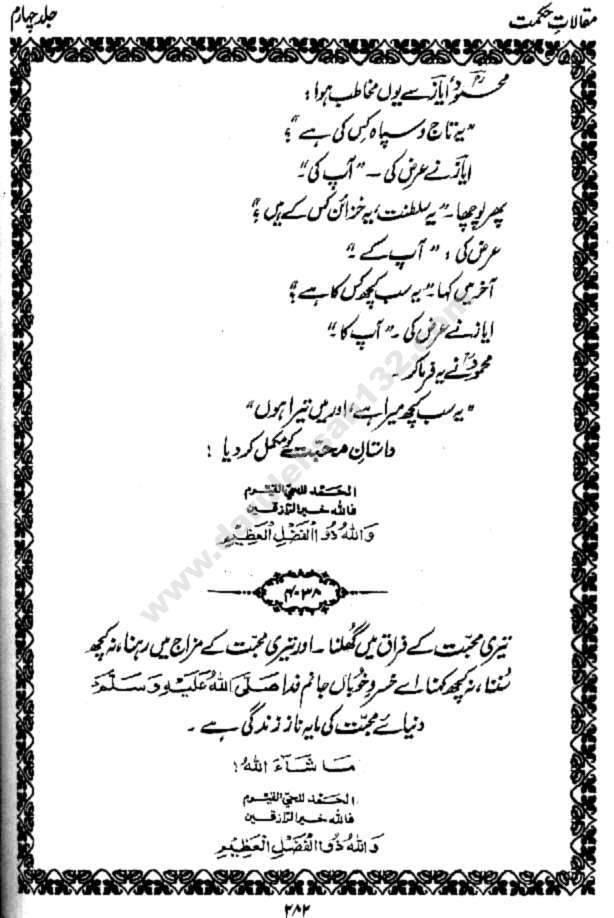 مقالاتِ حکمت
جلد چہارم
محمودؒ ایاز سے یوں مخاطب ہوا :
"یہ تاج و سپاہ کِس کی ہے"؟
ایاز نے عرض کی ۔ "آپ کی"
پھر پوچھا ۔ "یہ سلطنت، یہ خزائن کس کے ہیں"؟
عرض کی : "آپ کے ۔"
آخر میں کہا ۔ "یہ سب کچھ کس کا ہے"؟
ایاز نے عرض کی ۔ "آپ کا ۔"
محمودؒ نے یہ فرما کر ۔
"یہ سب کچھ میرا ہے، اور میں تیرا ہوں"
داستانِ محبت کو مکمل کر دیا :
الحمد للحی القیوم
فاللہ خیر الرازقین
وَاللهُ ذُو الْفَضْلِ الْعَظِيْمِ
۴۰۳۸
تیری محبّت کے فراق میں گھُلنا ۔ اور تیری محبت کے مزاج میں رہنا، نہ کچھ
سُننا، نہ کچھ کہنا، اے خسروِ خوباں جانم فدا صَلَّى اللهُ عَلَيْهِ وَسَلَّمَ
دنیائے محبّت کی مایہ ناز زندگی ہے ۔
مَا شَاءَ اللهُ !
الحمد للحی القیوم
فاللہ خیر الرازقین
وَاللهُ ذُو الْفَضْلِ الْعَظِيْمِ
۲۸۲